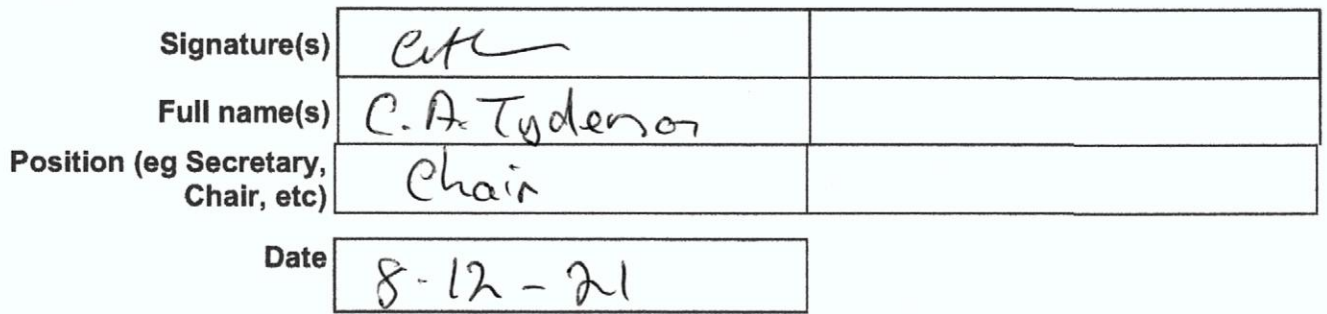 Signature(s)
Full name(s) C. A. Tyderson
Position (eg Secretary, Chair
Chair, etc)
Date 8-12-21